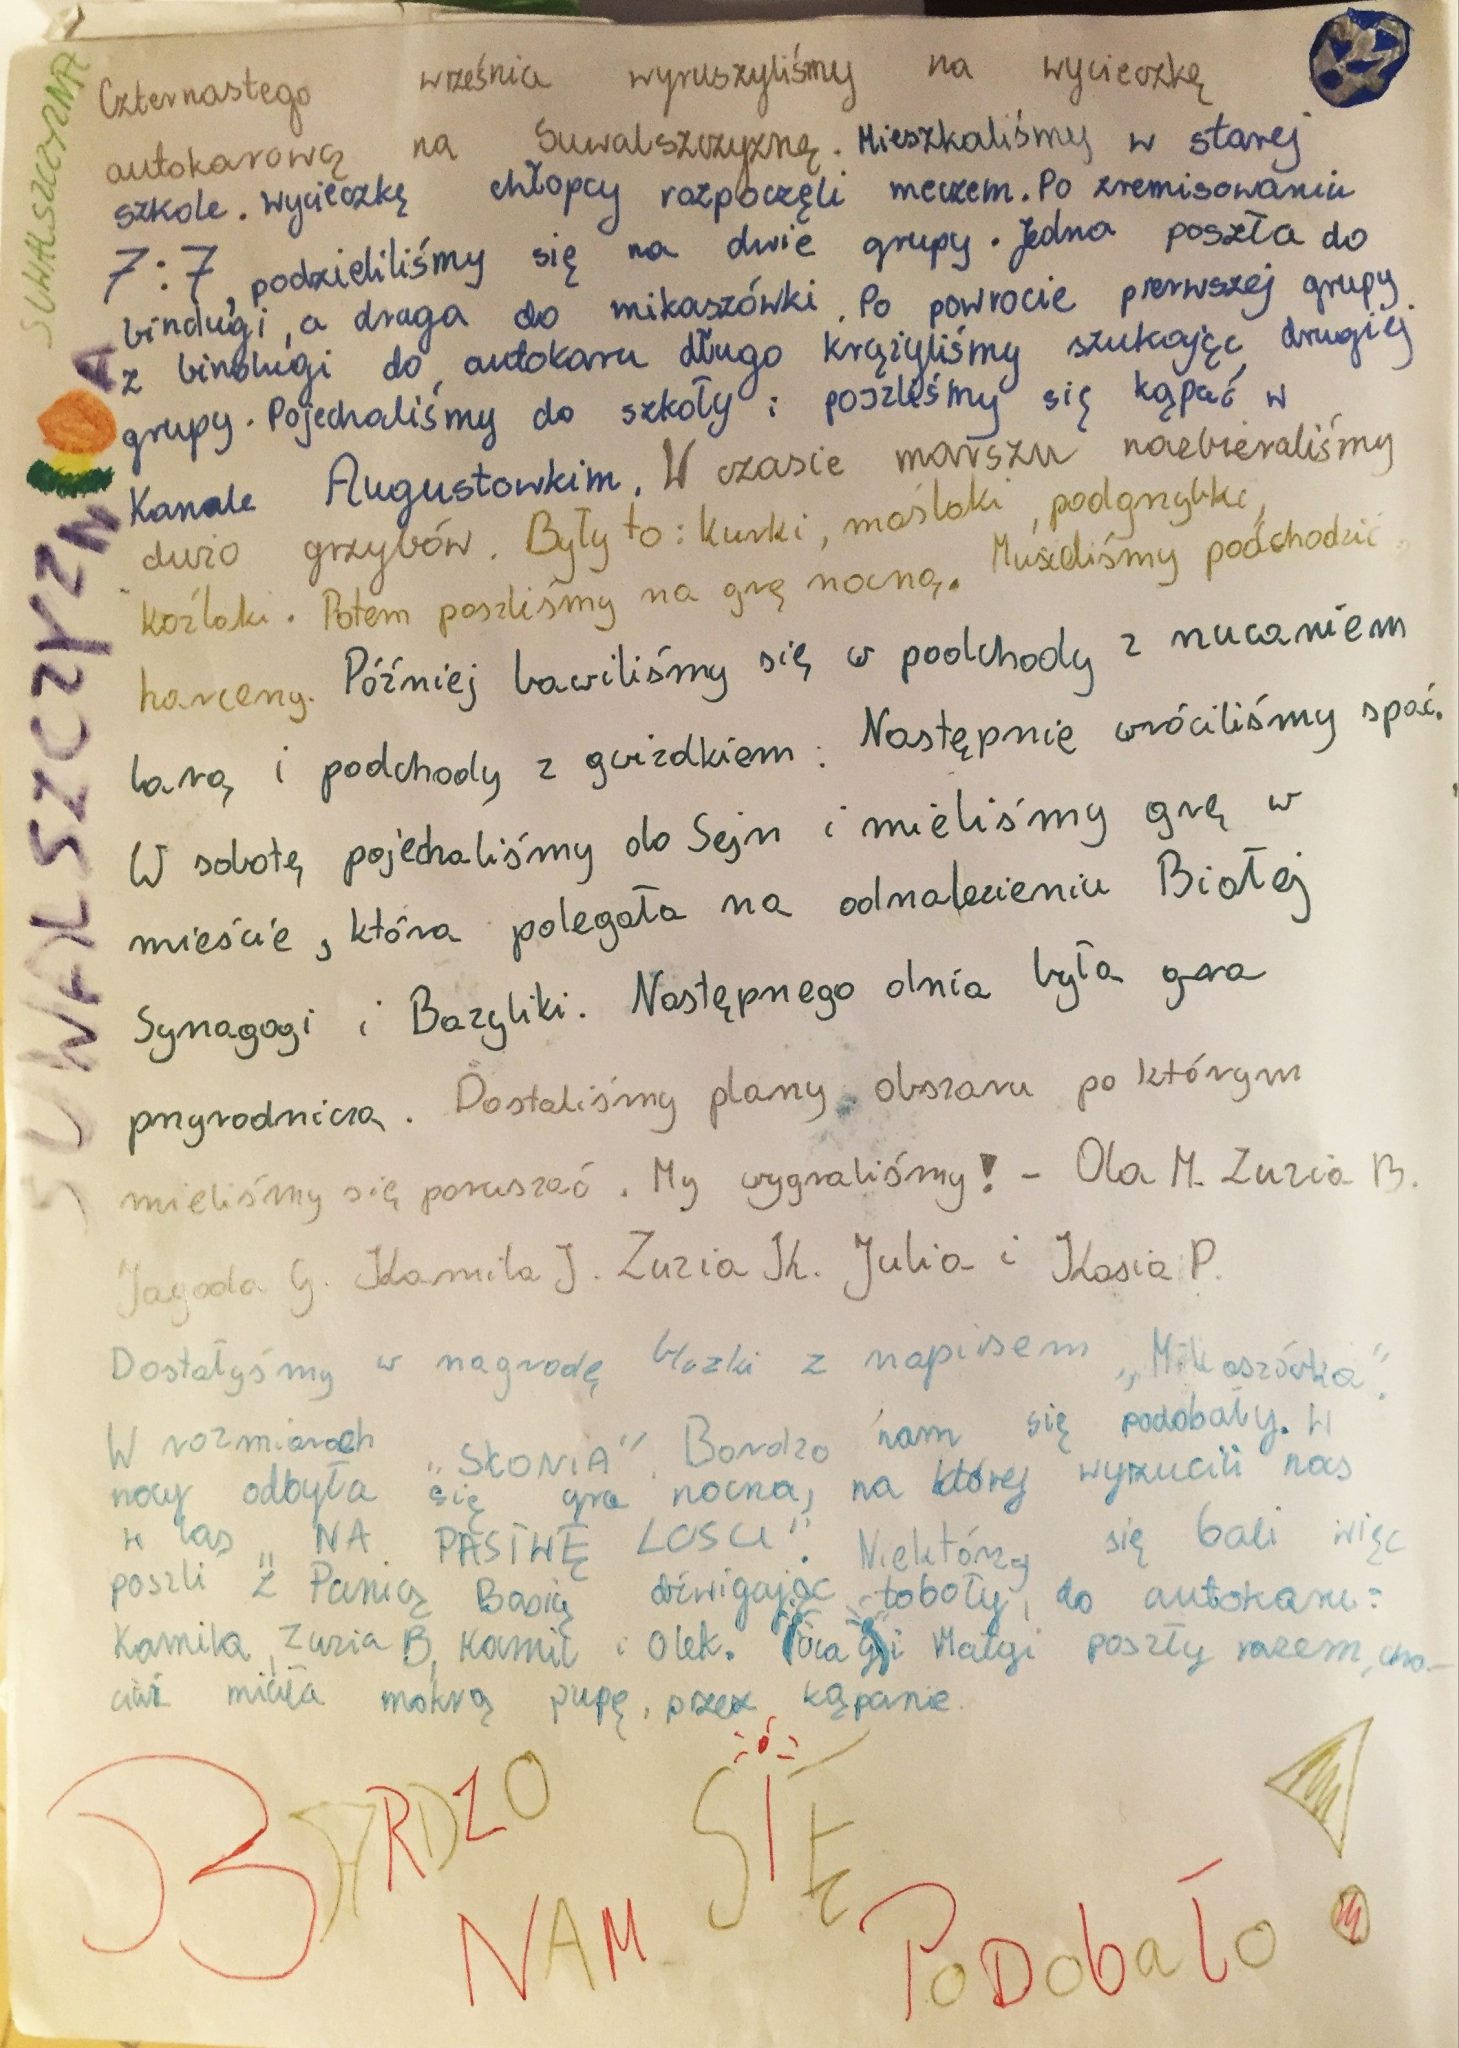 SUWALSZCZYZNA
SUWALSZCZYZNA
Czternastego września wyruszyliśmy na wycieczkę
autokarową na Suwalszczyznę. Mieszkaliśmy w starej
szkole. Wycieczkę chłopcy rozpoczęli meczem. Po zremisowaniu
7:7, podzieliliśmy się na dwie grupy. Jedna poszła do
bindugi, a druga do mikaszówki. Po powrocie pierwszej grupy
z bindugi do autokaru długo krążyliśmy szukając drugiej
grupy. Pojechaliśmy do szkoły i poszliśmy się kąpać w
Kanale Augustowkim. W czasie marszu nazbieraliśmy
dużo grzybów. Były to: kurki, maślaki, podgrzybki,
koźlaki. Potem poszliśmy na grę nocną. Musieliśmy podchodzić
harcerzy. Później bawiliśmy się w podchody z rzucaniem
larą i podchody z gwizdkiem. Następnie wróciliśmy spać.
W sobotę pojechaliśmy do Sejn i mieliśmy grę w
mieście, która polegała na odnalezieniu Białej
Synagogi i Bazyliki. Następnego dnia była gra
przyrodnicza. Dostaliśmy plany obszaru po którym
mieliśmy się poruszać. My wygraliśmy! - Ola M. Zuzia B.
Jagoda G. Kamila J. Zuzia K. Julia i Kasia P.
Dostałyśmy w nagrodę bluzki z napisem „Mikaszówka".
W rozmiarach „SŁONIA". Bardzo nam się podobały. W
nocy odbyła się gra nocna, na której wyrzucili nas
w las „NA PASTWĘ LOSU". Niektórzy się bali więc
poszli z Panią Basią dźwigając toboły, do autokaru:
Kamila, Zuzia B, Kamil i Olek. i Małgi poszły razem, cho-
ciaż miała mokrą pupę, przez kąpanie.
BARDZO NAM SIĘ PODOBAŁO!